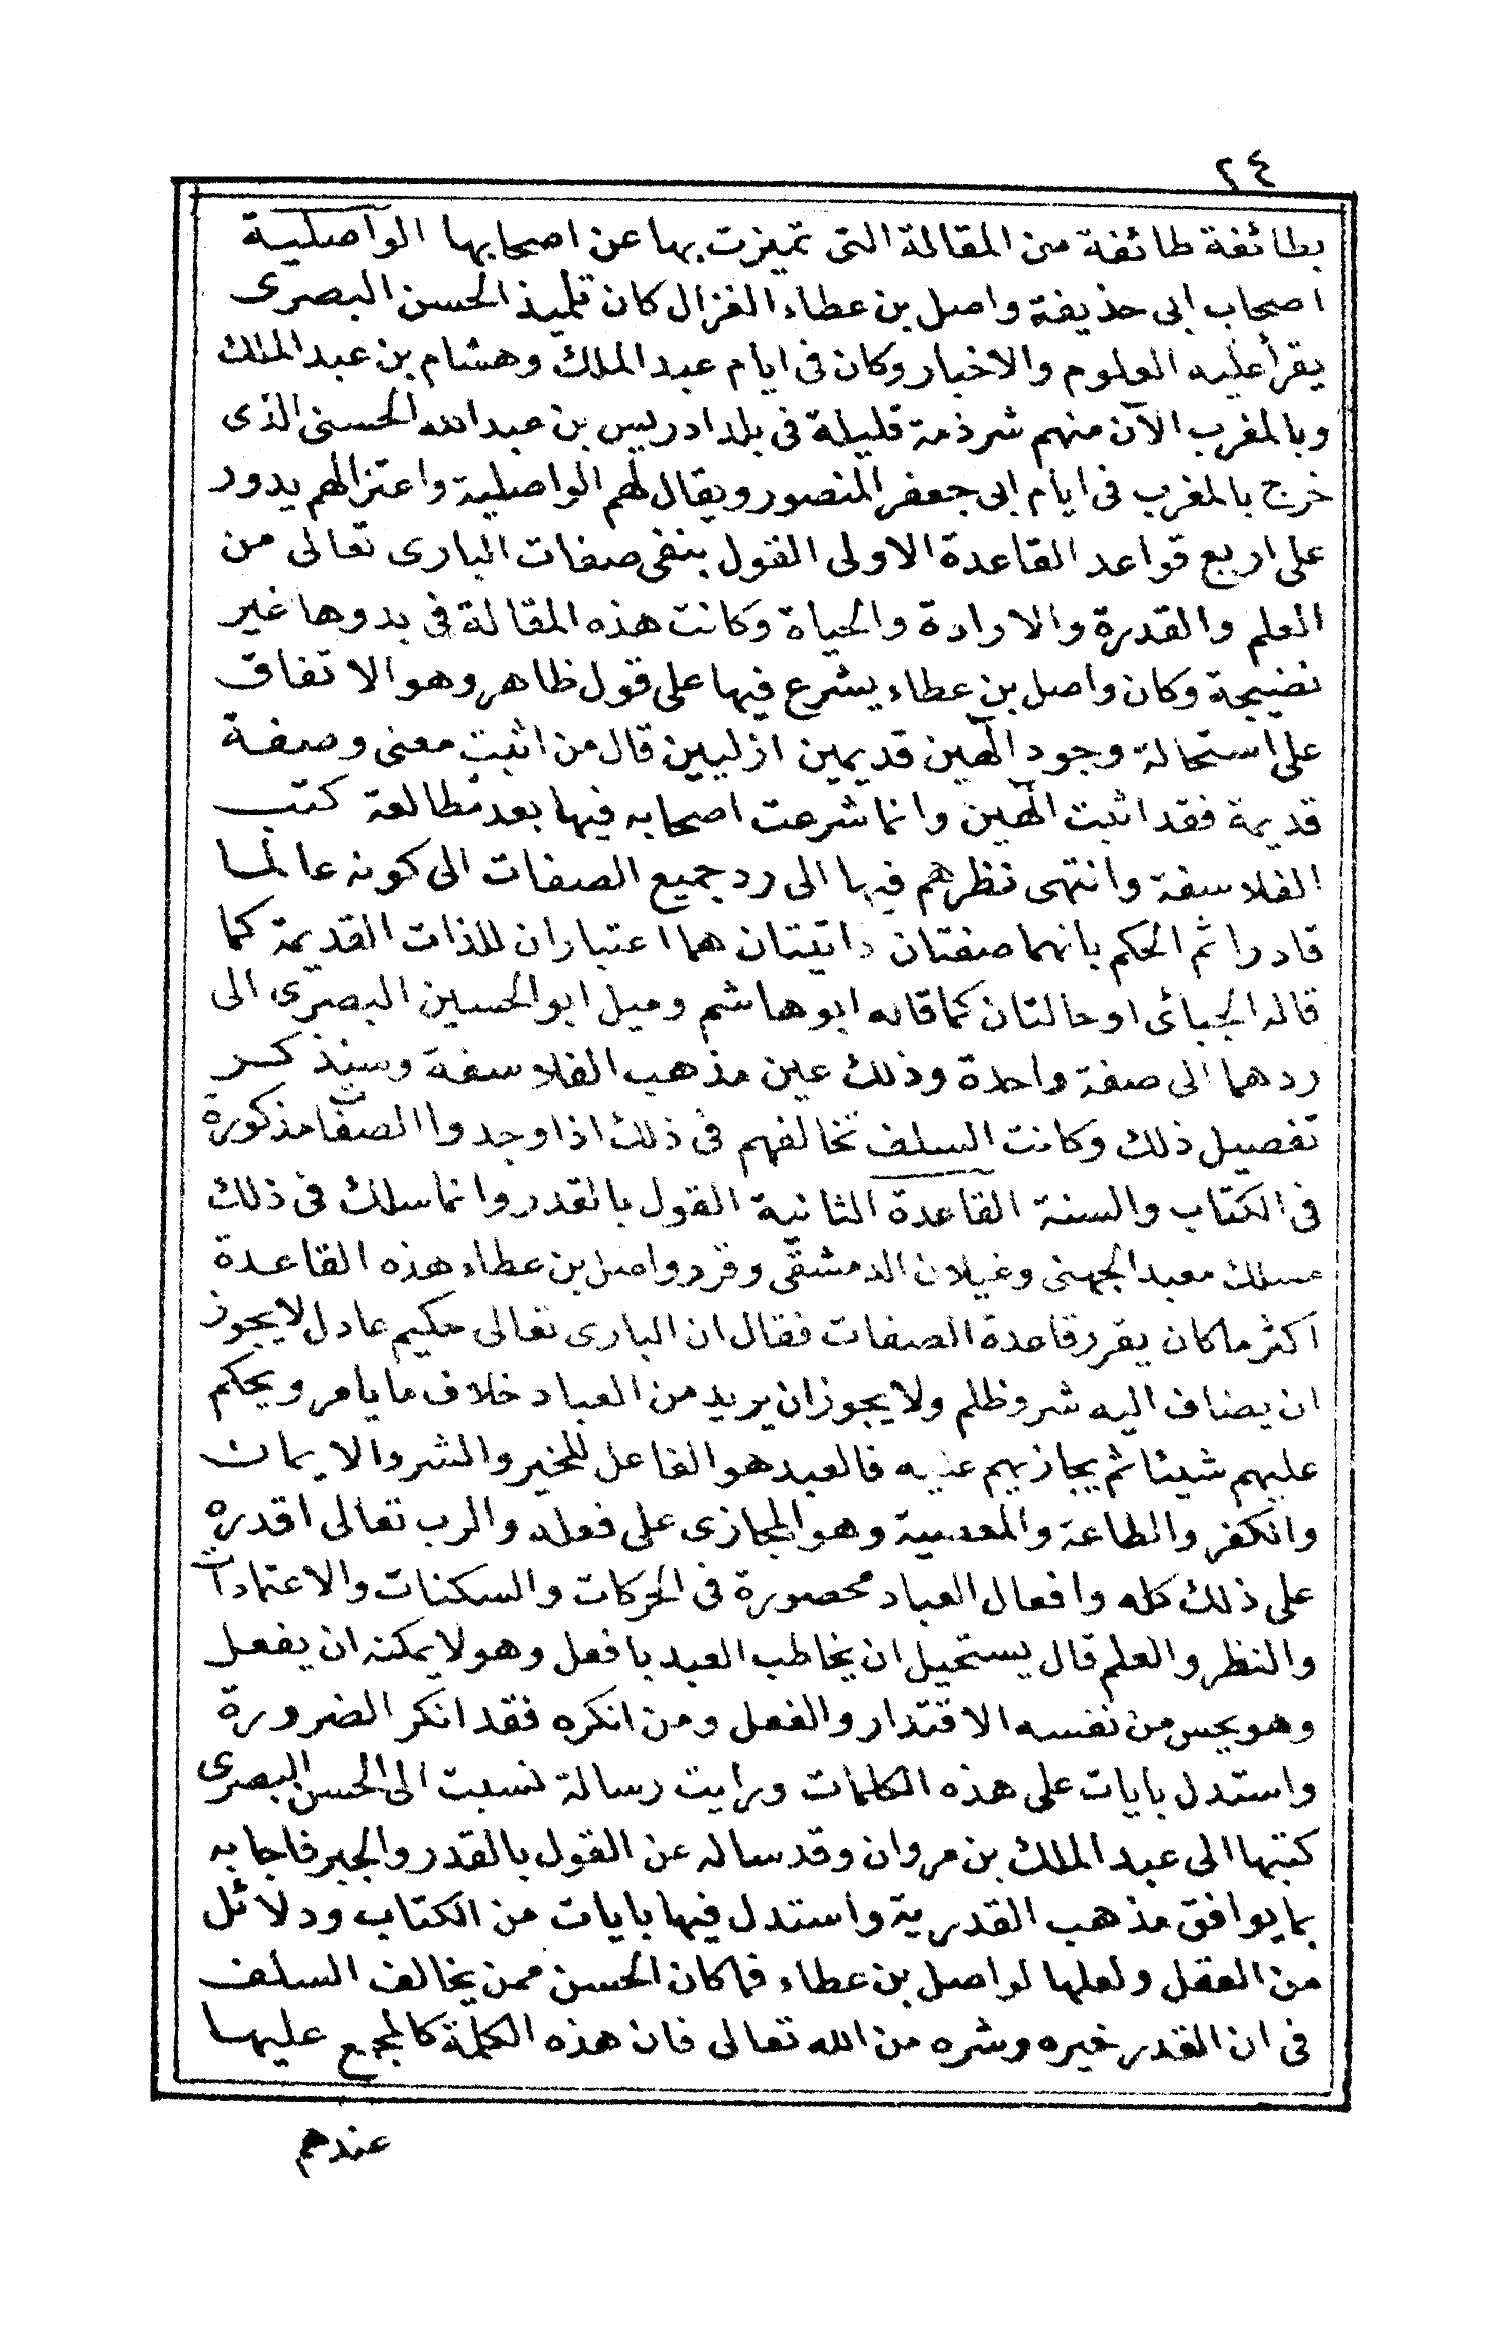 ٢٤
بطائفة طائفة من المقالة التى تميزت بها عن اصحابها الواصلية
اصحاب ابى حذيفة واصل بن عطاء الغزال كان تلميذ الحسن البصرى
يقرأ عليه العلوم والاخبار وكان فى ايام عبد الملك وهشام بن عبد الملك
وبالمغرب الآن منهم شرذمة قليلة فى بلد ادريس بن عبد الله الحسنى الذى
خرج بالمغرب فى ايام ابى جعفر المنصور ويقال لهم الواصلية واعتزالهم يدور
على اربع قواعد القاعدة الاولى القول بنفى صفات البارى تعالى من
العلم والقدرة والارادة والحياة وكانت هذه المقالة فى بدوها غير
نضيجة وكان واصل بن عطاء يشرع فيها على قول ظاهر وهو الاتفاق
على استحالة وجود الٓهين قديمين ازليين قال من اثبت معنى وصفة
قديمة فقد اثبت الٓهين وانما شرعت اصحابه فيها بعد مطالعة كتب
الفلاسفة وانتهى نظرهم فيها الى رد جميع الصفات الى كونه عالما
قادرا ثم الحكم بانهما صفتان ذاتيتان هما اعتباران للذات القديمة كما
قاله الجبائى او حالتان كما قاله ابو هاشم وميل ابو الحسين البصرى الى
ردهما الى صفة واحدة وذلك عين مذهب الفلاسفة وسنذكر
تفصيل ذلك وكانت السلف تخالفهم فى ذلك اذا وجدوا الصفات مذكورة
فى الكتاب والسنة القاعدة الثانية القول بالقدر وانما سلك فى ذلك
مسلك معبد الجهنى وغيلان الدمشقى وقرر واصل بن عطاء هذه القاعدة
اكثر ما كان يقرر قاعدة الصفات فقال ان البارى تعالى حكيم عادل لا يجوز
ان يضاف اليه شر وظلم ولا يجوز ان يريد من العباد خلاف ما يامر ويحكم
عليهم شيئا ثم يجازيهم عليه فالعبد هو الفاعل للخير والشر والايمان
والكفر والطاعة والمعصية وهو المجازى على فعله والرب تعالى اقدره
على ذلك كله وافعال العباد محصورة فى الحركات والسكنات والاعتمادات
والنظر والعلم قال يستحيل ان يخاطب العبد بافعل وهو لا يمكنه ان يفعل
وهو يحس من نفسه الاقتدار والفعل ومن انكره فقد انكر الضرورة
واستدل بايات على هذه الكلمات ورايت رسالة نسبت الى الحسن البصرى
كتبها الى عبد الملك بن مروان وقد ساله عن القول بالقدر والجبر فاجابه
بما يوافق مذهب القدرية واستدل فيها بايات من الكتاب ودلائل
من العقل ولعلها لواصل بن عطاء فما كان الحسن ممن يخالف السلف
فى ان القدر خيره وشره من الله تعالى فان هذه الكلمة كالمجمع عليها
عندهم